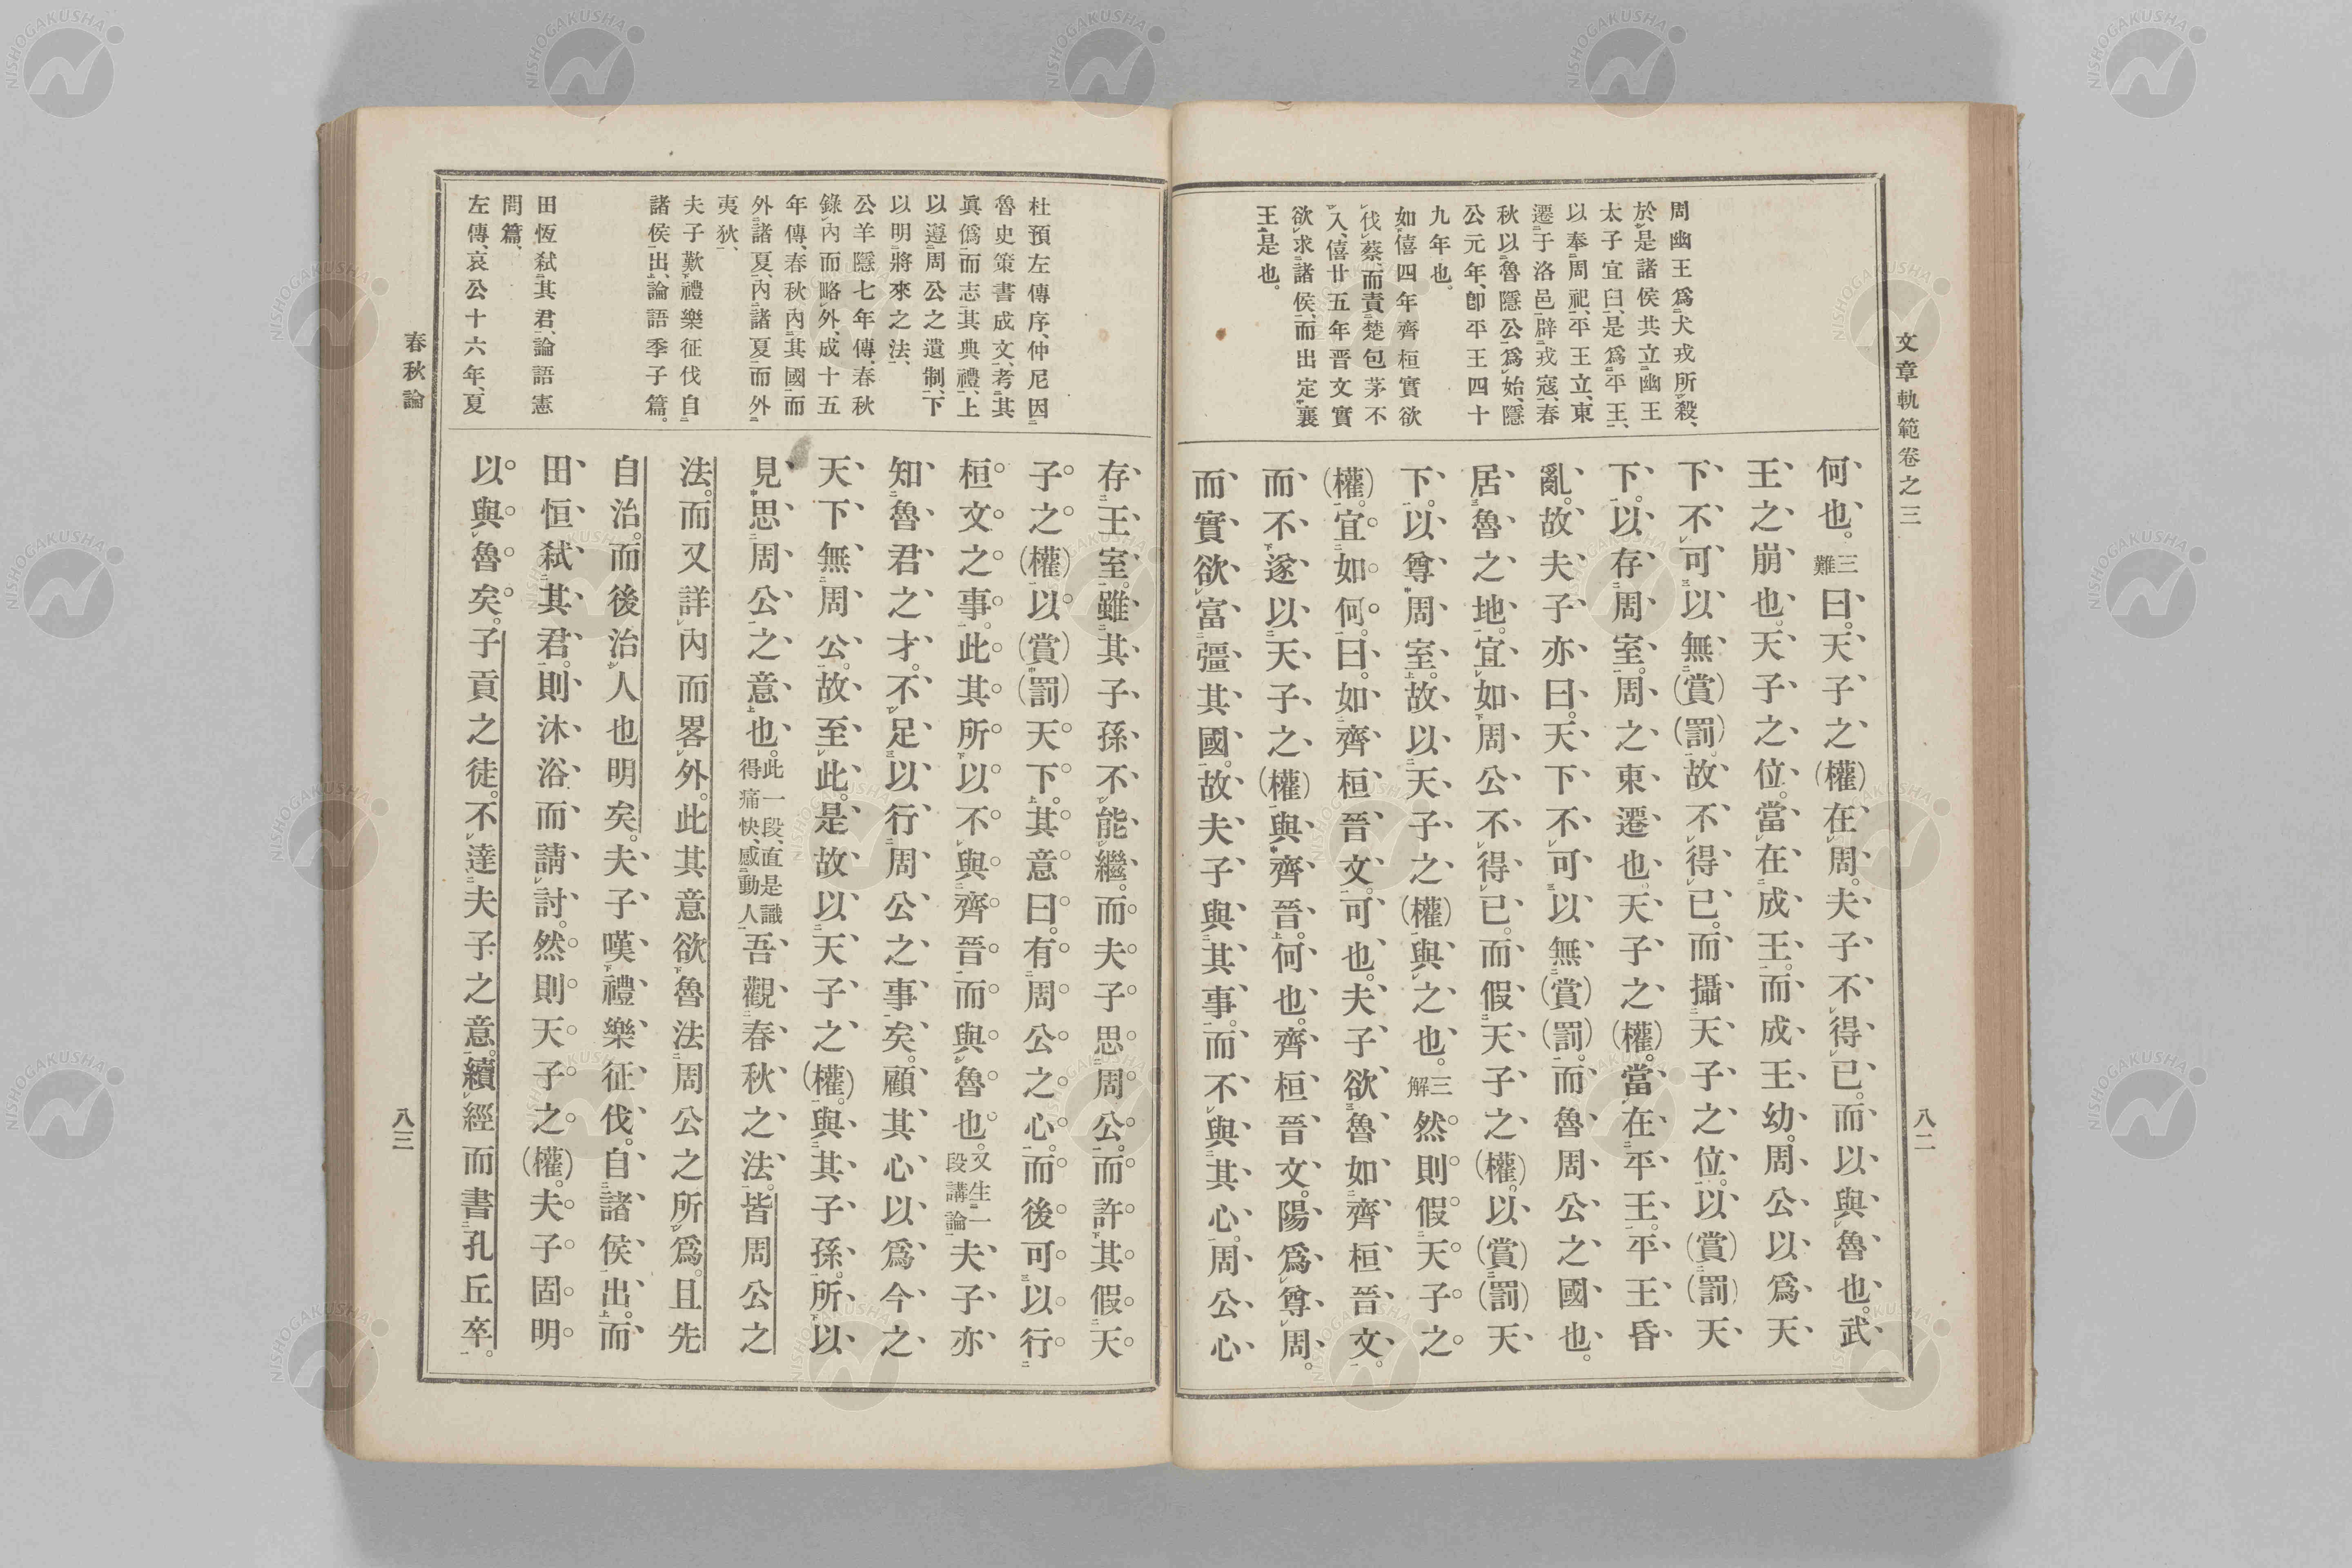 文章軌範卷之三
八二
周幽王爲犬戎所殺、
於是諸侯共立幽王
太子宜臼、是爲平王、
以奉周祀、平王立、東
遷于洛邑、辟戎寇、春
秋以魯隱公爲始、隱
公元年、卽平王四十
九年也。
如僖四年齊桓實欲
伐蔡而責楚包茅不
入、僖廿五年晋文實
欲求諸侯、而出定襄
王是也。
何也。三難曰。天子之(權)在周。夫子不得已。而以與魯也。武
王之崩也。天子之位。當在成王。而成王幼。周公以爲天
下不可以無(賞)(罰)。故不得已。而攝天子之位。以(賞)(罰)天
下。以存周室。周之東遷也。天子之(權)。當在平王。平王昏
亂。故夫子亦曰。天下不可以無(賞)(罰)。而魯周公之國也。
居魯之地。宜如周公不得已。而假天子之(權)。以(賞)(罰)天
下。以尊周室。故以天子之(權)與之也。三解然則。假天子之
(權)。宜如何。曰。如齊桓晉文。可也。夫子欲魯如齊桓晉文。
而不遂以天子之(權)與齊晉。何也。齊桓晉文。陽爲尊周。
而實欲富彊其國。故夫子與其事。而不與其心。周公心
存王室。雖其子孫不能繼。而夫子思周公。而許其假天
子之(權)以(賞)(罰)天下。其意曰。有周公之心。而後可以行
桓文之事。此其所以不與齊晉而與魯也。文生一段講論夫子亦
知魯君之才。不足以行周公之事矣。顧其心以爲今之
天下無周公。故至此。是故以天子之(權)。與其子孫。所以
見思周公之意也。此一段、直是識得痛快、感動人吾觀春秋之法。皆周公之
法。而又詳內而畧外。此其意欲魯法周公之所爲。且先
自治。而後治人也明矣。夫子嘆禮樂征伐。自諸侯出。而
田恒弒其君。則沐浴而請討。然則天子之(權)。夫子固明
以與魯矣。子貢之徒。不達夫子之意。續經而書孔丘卒。
杜預左傳序、仲尼因
魯史策書成文、考其
眞僞而志其典禮、上
以遵周公之遺制、下
以明將來之法、
公羊隱七年傳、春秋
錄內而略外、成十五
年傳、春秋內其國而
外諸夏、內諸夏而外
夷狄、
夫子歎禮樂征伐自
諸侯出、論語季子篇。
田恆弒其君、論語憲
問篇、
左傳、哀公十六年、夏
春秋論
八三